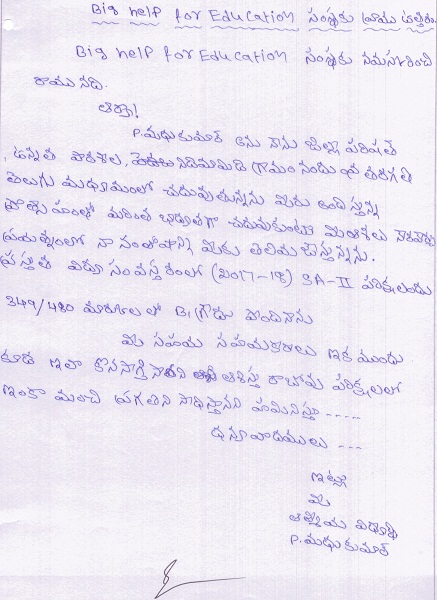 Big help for Education సంస్థకు వ్రాయు ఉత్తరం
Big help for Education సంస్థకు నమస్కరించి
వ్రాయునది.
అక్కా!
P. మధుకుమార్ అను నేను జిల్లా పరిషత్
ఉన్నత పాఠశాల, నిడిమామిడి గ్రామం నందు 10వ తరగతి
తెలుగు మాధ్యమంలో చదువుతున్నాను మీరు అందిస్తున్న
ప్రోత్సాహంతో మరింత బాధ్యతగా చదువుకుంటూ మీ
ప్రయత్నంలో నా సంతోషాన్ని మీకు తెలియజేస్తున్నాను.
ప్రస్తుత విద్యా సంవత్సరంలో (2017-18) SA-II పరీక్షలందు
349/480 మార్కులలో B1 గ్రేడు పొందినాను
మీ సహాయ సహకారాలు ఇక ముందు
కూడ ఇలా కొనసాగుతాయని ఆశిస్తూ రాబోవు పరీక్షలలో
ఇంకా మంచి ప్రగతిని సాధిస్తానని హామినిస్తూ -----
ధన్యవాదములు ---
ఇట్లు
మీ
ఆత్మీయ విద్యార్థి
P. మధుకుమార్